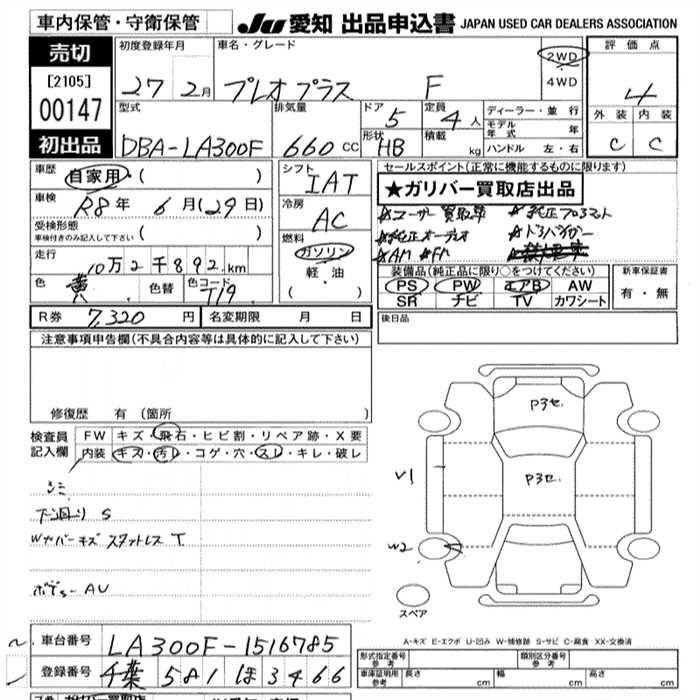 車内保管・守衛保管
JU 愛知 出品申込書 JAPAN USED CAR DEALERS ASSOCIATION
売切
[2105]
00147
初出品
初度登録年月
27 年 2月
車名・グレード
プレオプラス F
2WD
4WD
評価点
4
外装 内装
C C
型式
DBA-LA300F
排気量
660 CC
ドア 5
形状 HB
定員 4人
積載 kg
ディーラー・並行
モデル年式 年
ハンドル 左・右
車歴 自家用 ( )
車検 R8年 6月(29日)
受検形態
車検付きのみ記入して下さい ( )
走行 10万2千892km
色 黄 色替 色コード T19
シフト
IAT
冷房
AC
燃料
ガソリン
軽・油
( )
セールスポイント(正常に機能するものに限ります)
★ガリバー買取店出品
☆ユーザー買取車
☆純正オーディオ ☆ドアバイザー
☆AM ☆FM
装備品(純正品に限り○をつけてください)
PS PW エアB AW
SR ナビ TV カワシート
新車保証書
有・無
R券 7,320 円 名変期限 月 日
後日品
注意事項申告欄(不具合内容等は具体的に記入して下さい)
修復歴 有 (箇所 )
検査員記入欄
FW キズ・飛石・ヒビ割・リペア跡・X要
内装 キズ・汚レ・コゲ・穴・スレ・キレ・破レ
シミ
下回り S
Wナンバーキズ スタットレス T
ボデー AU
P3セ.
P3セ.
V1
W2
スペア
A-キズ E-エクボ U-凹み W-補修跡 S-サビ C-腐食 XX-交換済
車台番号 LA300F-1516785
登録番号 千葉 581 ほ 3466
形式指定番号 参考
類別区分番号 参考
車庫証明用 参考 長さ cm 幅 cm 高さ cm